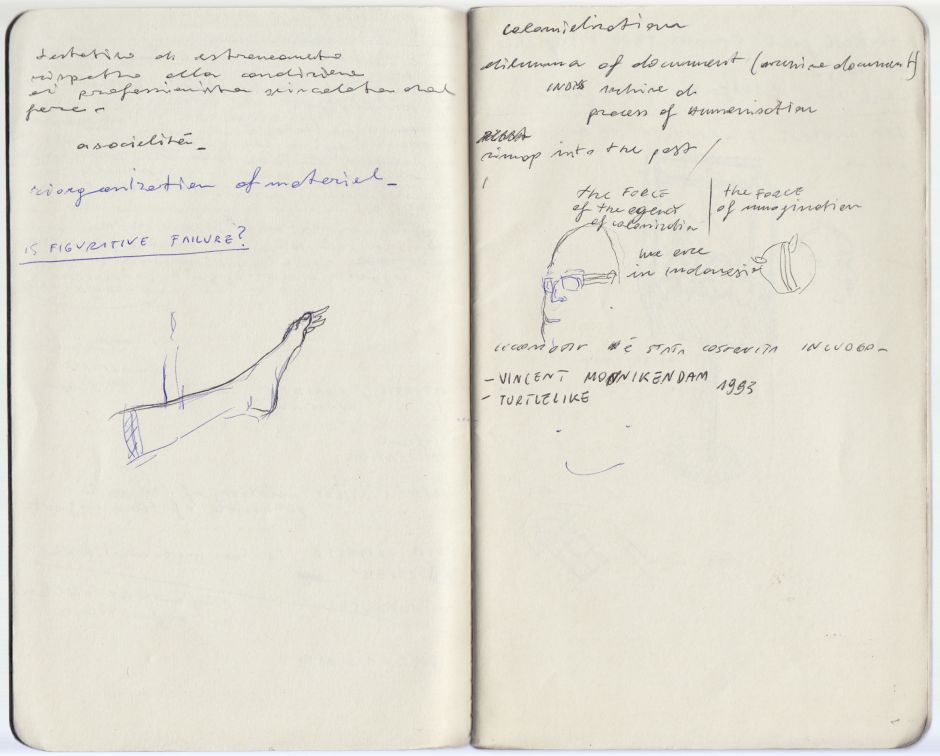 tentativo di estraneamento
rispetto alla condizione
di professionista svincolata dal
fare -
asocialità -
riorganization of material -
IS FIGURATIVE FAILURE?
colonialization
dilemma of document (archive document)
machine di
process of Humanisation
into the past /
the FORCE
of the agents
of colonization
the FORCE
of immagination
we are
in Indonesia
è STATA COSTRUITA IN LUOGO -
- VINCENT MONNIKENDAM 1993
- TURTLELIKE